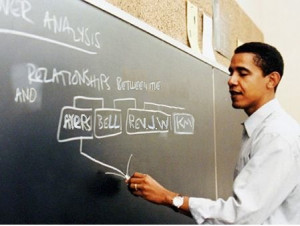 POWER ANALYSIS
RELATIONSHIPS BETWEEN
AND
AYERS BELL REV. J. W KM